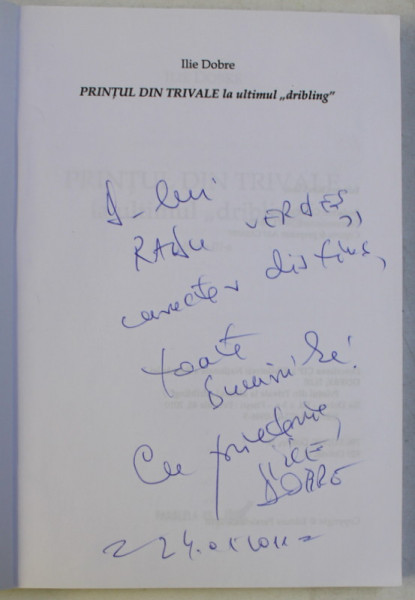 Ilie Dobre
PRINȚUL DIN TRIVALE la ultimul „dribling”
D-lui
RADU VERDEȘ,
caracter distins,
toate
bunurile!
Cu prietenie,
ILIE
DOBRE